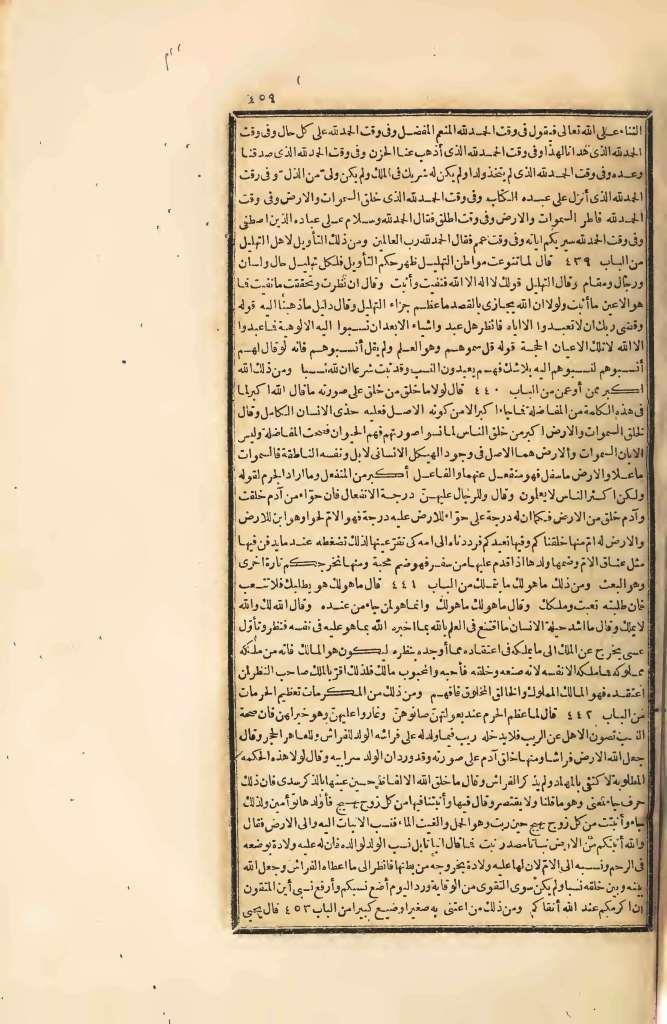 ٤٥٩
الثناء على الله تعالى فيقول فى وقت الحمد لله المنعم المفضل وفى وقت الحمد لله على كل حال وفى وقت
الحمد لله الذى هدانا لهذا وفى وقت الحمد لله الذى أذهب عنا الحزن وفى وقت الحمد لله الذى صدقنا
وعده وفى وقت الحمد لله الذى لم يتخذ ولدا ولم يكن له شريك فى الملك ولم يكن له ولى من الذل وفى وقت
الحمد لله الذى أنزل على عبده الكتاب وفى وقت الحمد لله الذى خلق السموات والارض وفى وقت
الحمد لله فاطر السموات والارض وفى وقت اطلق فقال الحمد لله وسلام على عباده الذين اصطفى
وفى وقت الحمد لله سيريكم اياته وفى وقت عمم فقال الحمد لله رب العالمين ومن ذلك التأويل لاهل التهليل
من الباب ٤٣٩ قال لما تنوعت مواطن التهليل ظهر حكم التأويل فلكل تهليل حال ولسان
ورجال ومقام وقال التهليل قولك لا اله الا الله فنفيت وأثبت وقال ان نظرت وتحققت ما نفيت فما
هو الا عين ما أثبت ولولا ان الله يجازى بالقصد ما عظم جزاء التهليل وقال دليل ما ذهبنا اليه قوله
وقضى ربك ان لا تعبدوا الا اياه فانظر هل عبد واشياء الا بعد ان نسبوا اليه الالوهية فما عبدوا
الا الله لا تلك الاعيان الحجة قوله قل سموهم وهو العلم ولم يقل أنسبوهم فانه لو قال لهم
أنسبوهم لنسبوهم اليه بلا شك فهم يعبدون النسب وقد ثبت شرعا ان لله نسبا ومن ذلك الله
اكبر ممن أو عمن من الباب ٤٤٠ قال لولا ما خلق من خلق على صورته ما قال الله اكبر لما
فى هذه الكلمة من المفاضلة فما جاء اكبر الا من كونه الاصل فعليه حذى الانسان الكامل وقال
لخلق السموات والارض اكبر من خلق الناس لما نسوا صورتهم فهم الحيوان فصحت المفاضلة وليس
الا بان السموات والارض هما الاصل فى وجود الهيكل الانسانى لا بل ونفسه الناطقة فالسموات
ما علا والارض ما سفل فهو منفعل عنهما والفاعل أكبر من المنفعل وما اراد الجرم لقوله
ولكن اكثر الناس لا يعلمون وقال وللرجال عليهن درجة الانفعال فان حواء من آدم خلقت
وآدم خلق من الارض فكما ان له درجة على حواء للارض عليه درجة فهو الام لحوا وهو ابن للارض
والارض له ام منها خلقناكم وفيها نعيدكم فرددناه الى امه كى تقر عينها لذلك تضغطه عند ما يدفن فيها
مثل عناق الام وضمها ولدها اذا قدم عليها من سفر فهو ضم محبة ومنها نخرجكم تارة اخرى
وهو البعث ومن ذلك ما هو لك ما يملك من الباب ٤٤١ قال ما هو لك هو يطلبك فلا تتعب
فان طلبته تعبت وملكك وقال ما هو لك ما هو لك وانما هو لمن جاء من عنده وقال الله لك والله
لا يملك وقال ما اشد حيلة الانسان ما اقتنع فى العلم بالله بما اخبره الله بما هو عليه فى نفسه فنظر وتأول
عسى يخرج عن الملك الى ما يملكه فى اعتقاده مما أوجده بنظره ليكون هو المالك فانه من ملكه
مملوكه فما ملكه الا نفسه لانه صنعه وخلقه فأحبه والمحبوب مالك فلذلك اقر بالملك صاحب النظر لمن
اعتقده فهو المالك المملوك والخالق المخلوق فافهم ومن ذلك من المكرمات تعظيم الحرمات
من الباب ٤٤٢ قال لما عظم الحرم عند بعولتهن صانوهن وغاروا عليهن وهو خير لهن فان صحة
النسب تصون الاهل عن الريب فلا يدخله ريب فيما ولد له على فراشه الولد للفراش وللعاهر الحجر وقال
جعل الله الارض فراشا ومنها خلق آدم على صورته وقد ورد ان الولد سر ابيه وقال لولا هذه الحكمه
المطلوبة لاكتفى بالمهاد ولم يذكر الفراش وقال ما خلق الله الالفاظ حين عينها بالذكر سدى فان ذلك
حرف جاء لمعنى وهو ما قلنا ولا يقتصر وقال فيها وأنبتنا فيها من كل زوج بهيج فأولدها توأمين ولذلك
جاء وأنبتت من كل زوج بهيج حين ربت وهو الحمل والغيث الماء فنسب الانبات اليه والى الارض فقال
والله أنبتكم من الارض نباتا مصدر نبت فما قال انباتا بل نسب الولد لوالده فان له عليه ولادة بوضعه
فى الرحم ونسبه الى الام لان لها عليه ولادة بخروجه من بطنها فانظر الى ما اعطاه الفراش وجعل الله
بينه وبين خلقه نسبا ولم يكن سوى التقوى من الوقاية ورد اليوم أضع نسبكم وأرفع نسبى أين المتقون
ان اكرمكم عند الله أتقاكم ومن ذلك من اعتنى به صغيرا وضيع كبيرا من الباب ٤٥٣ قال يحيى